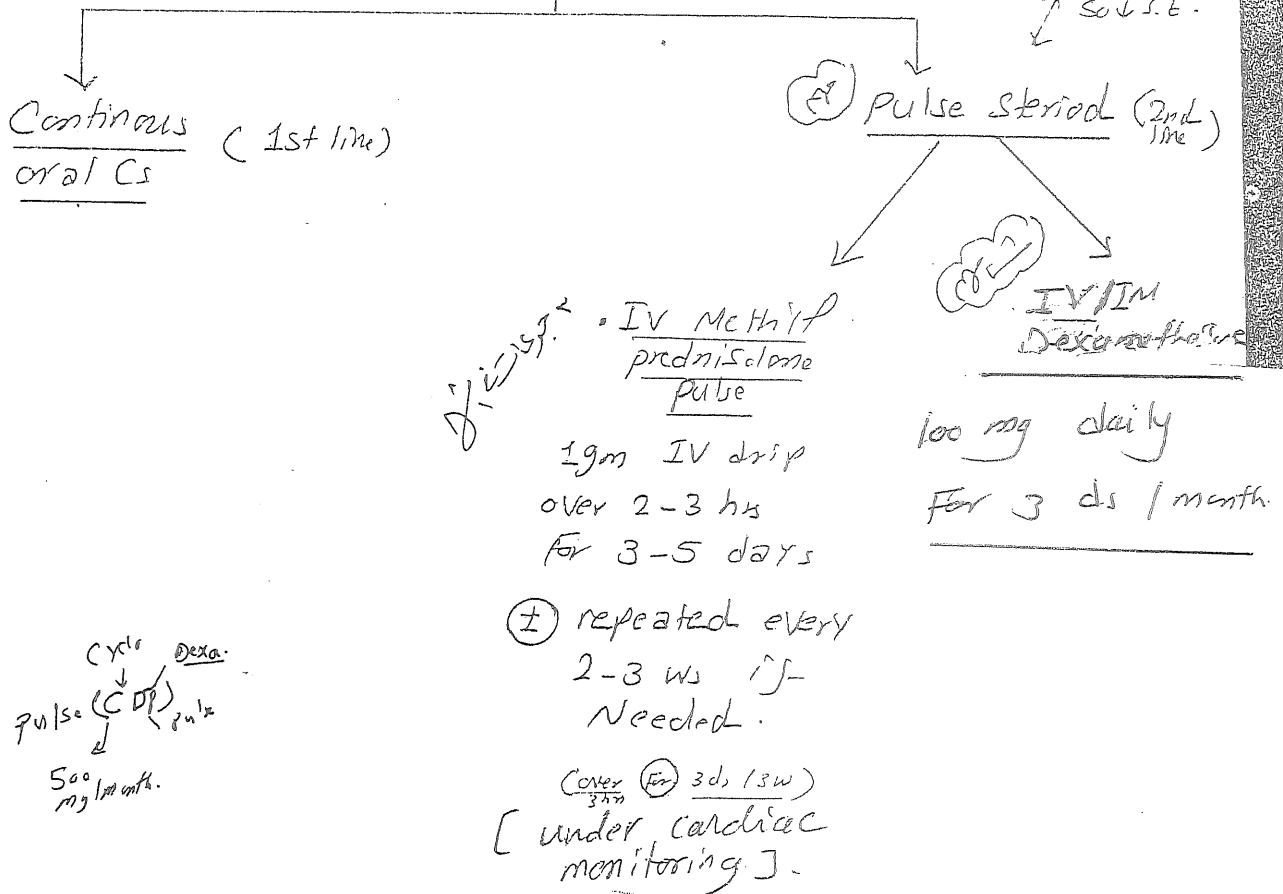 so ↓ S.E.
Continous
oral Cs
( 1st line)
Pulse Steriod (2nd
line)
• IV Methyl
prednisolone
pulse
1gm IV drip
over 2-3 hrs
for 3-5 days
± repeated every
2-3 ws if
Needed.
(over 3hrs for 3ds / 3w)
[ under cardiac
monitoring ].
IV/IM
100 mg daily
For 3 ds / month.
Cyclo
Dexa.
pulse (C DP) pulse
500
mg/month.